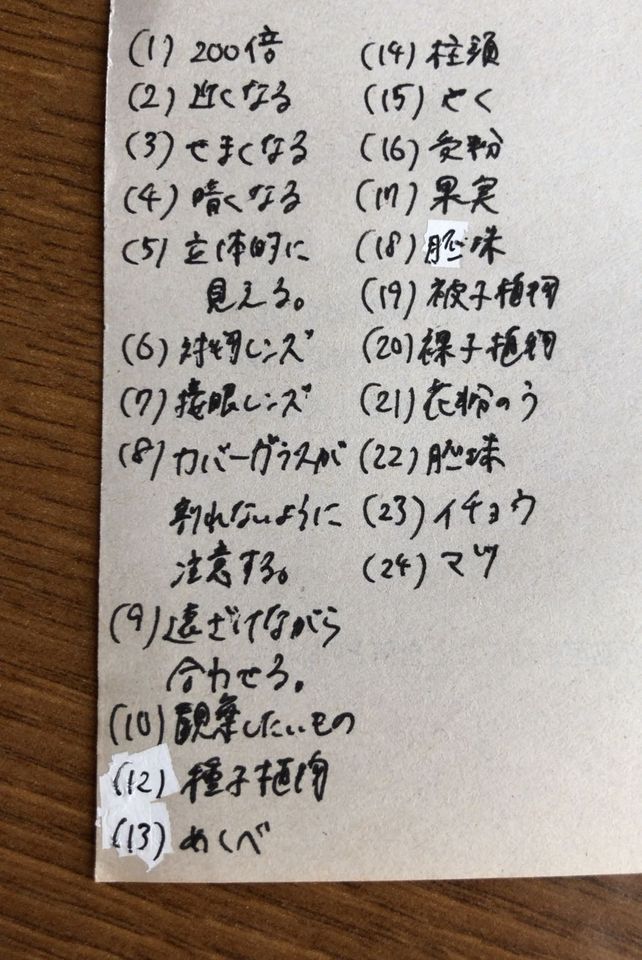 (1) 200倍
(2) 近くなる
(3) せまくなる
(4) 暗くなる
(5) 立体的に
見える。
(6) 対物レンズ
(7) 接眼レンズ
(8) カバーガラスが
割れないように
注意する。
(9) 遠ざけながら
合わせる。
(10) 観察したいもの
(12) 種子植物
(13) めしべ
(14) 柱頭
(15) やく
(16) 受粉
(17) 果実
(18) 胚珠
(19) 被子植物
(20) 裸子植物
(21) 花粉のう
(22) 胚珠
(23) イチョウ
(24) マツ